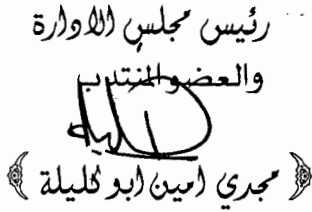 رئيس مجلس الادارة
والعضو المنتدب
﴿ مجدي امين ابو كليلة ﴾